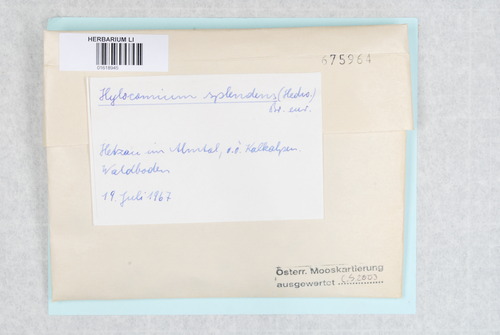 HERBARIUM LI
675964
Hylocomium splendens (Hedw.)
Br. eur.
Hetzau im Almtal, o.ö. Kalkalpen.
Waldboden
19. Juli 1967
Österr. Mooskartierung
ausgewertet